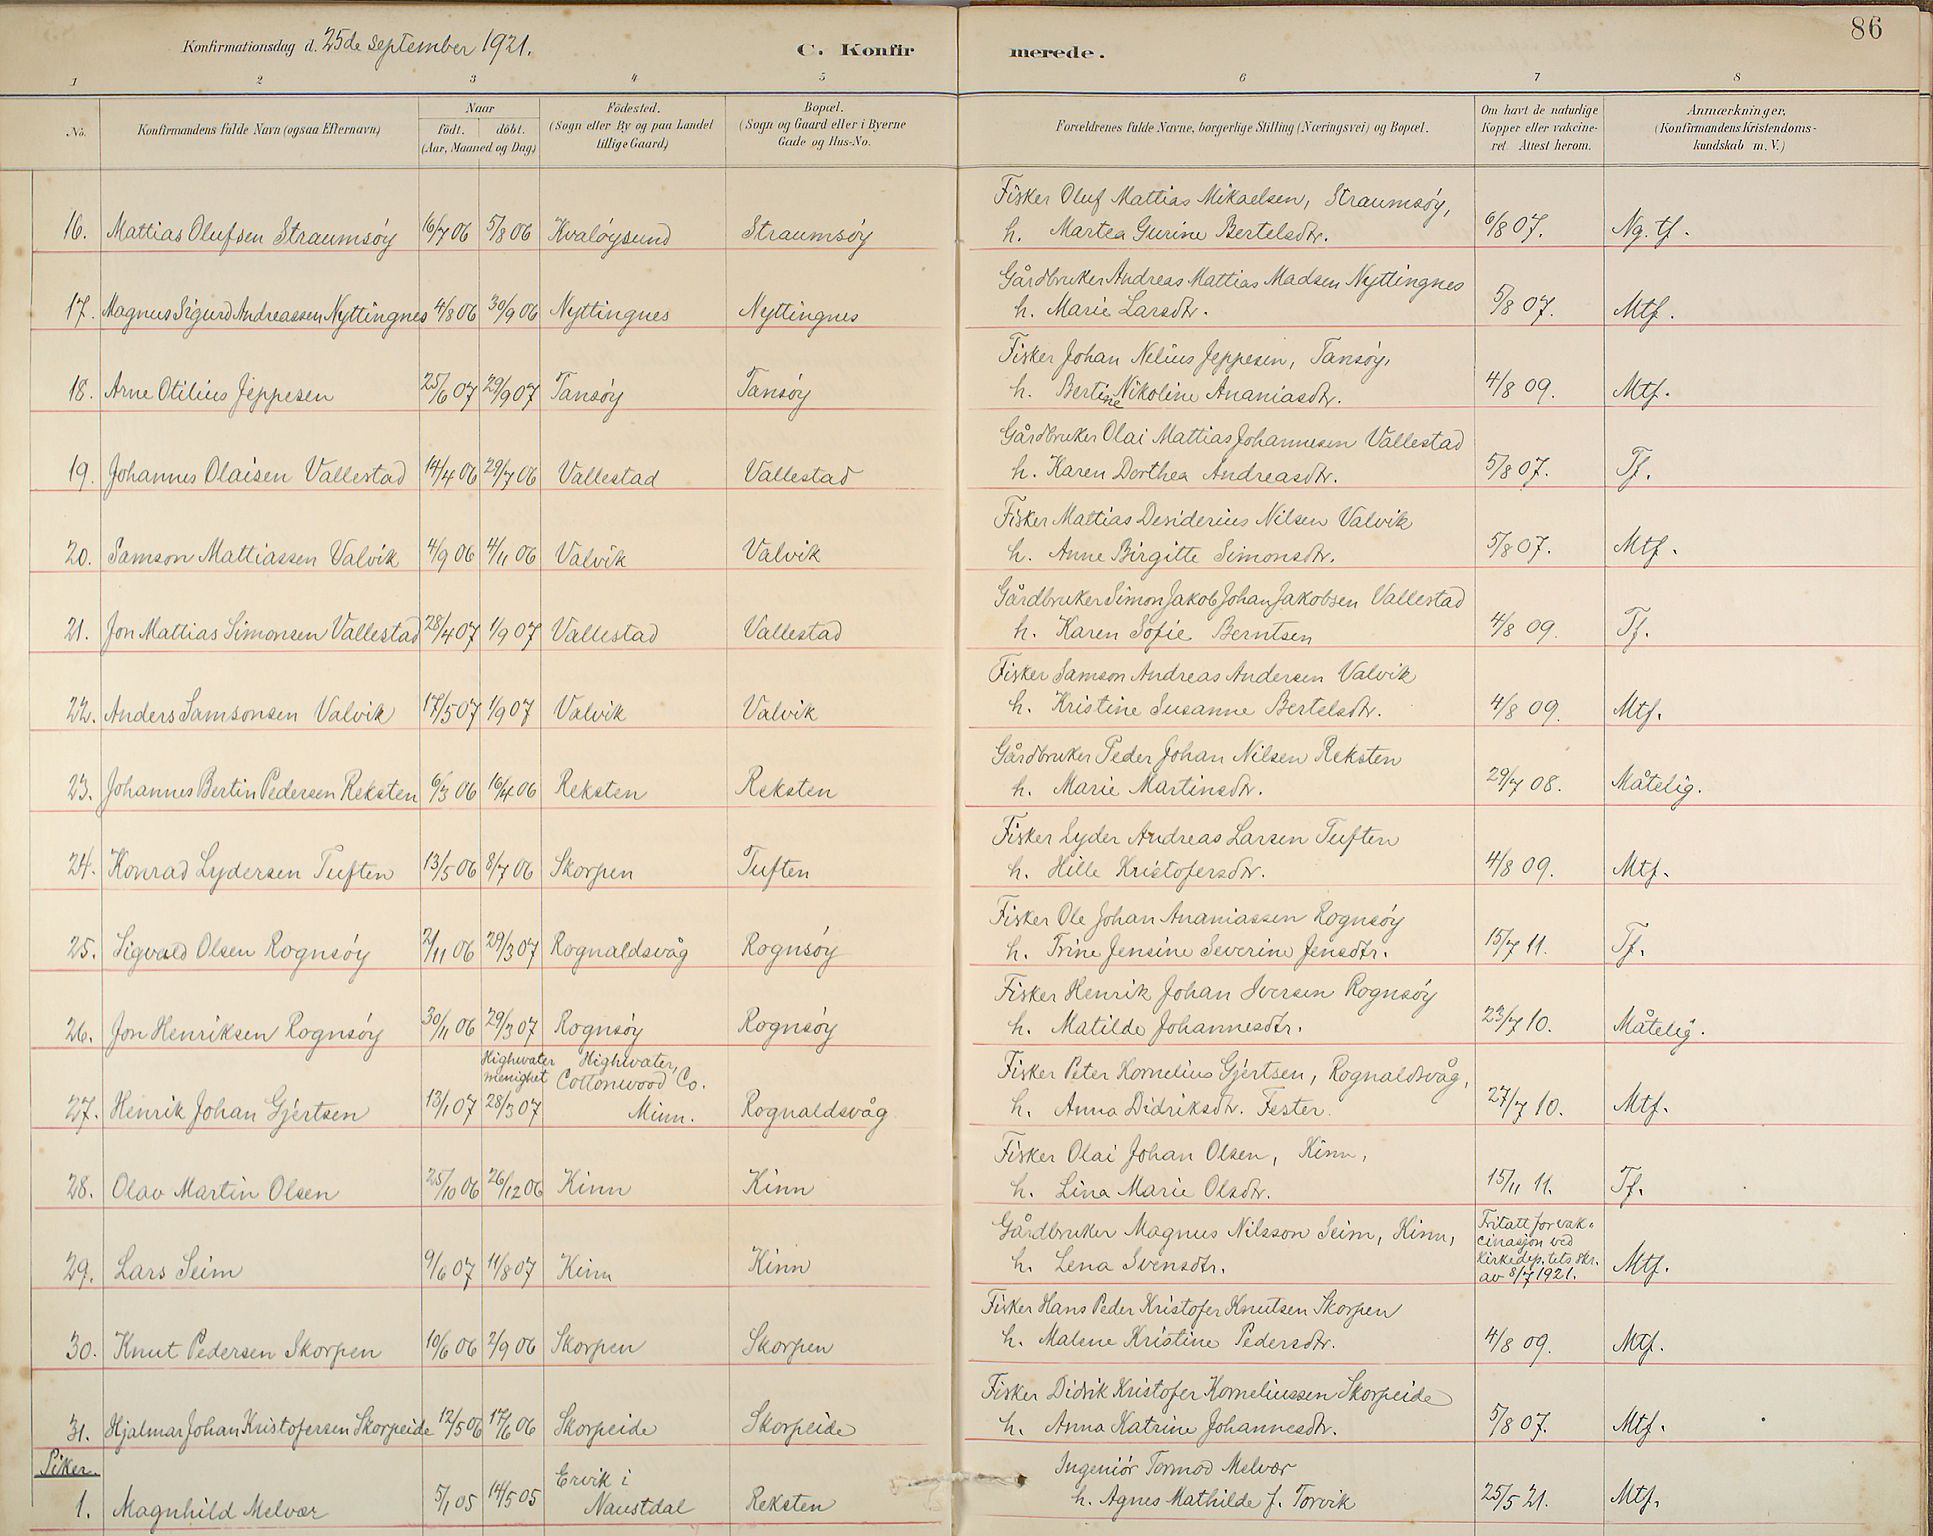 86
Konfirmationsdag d. 25de september 1921.
C. Konfir merede.
1 2 3 4 5 6 7 8
No. Konfirmandens fulde Navn (ogsaa Efternavn) Naar födt. döbt. (Aar, Maaned og Dag) Födested. (Sogn eller By og paa Landet tillige Gaard) Bopæl. (Sogn og Gaard eller i Byerne Gade og Hus-No. Forældrenes fulde Navne, borgerlige Stilling (Næringsvei) og Bopæl. Om havt de naturlige Kopper eller vakcineret. Attest herom. Anmærkninger, (Konfirmandens Kristendomskundskab m. V.)
Fisker Oluf Mattias Mikaelsen, Straumsöy,
16. Mattias Olufsen Straumsöy 16/7 06 5/8 06 Kvalöysund Straumsöy h. Martea Gurine Bertelsdtr. 6/8 07. Ng. tf.
Gårdbruker Andreas Mattias Madsen Nyttingnes
17. Magnus Sigurd Andreassen Nyttingnes 4/8 06 30/9 06 Nyttingnes Nyttingnes h. Marie Larsdtr. 5/8 07. Mtf.
Fisker Johan Nelius Jeppesen, Tansöy,
18. Arne Otilius Jeppesen 25/6 07 29/9 07 Tansöy Tansöy h. Bertine Nikoline Ananiasdtr. 4/8 09. Mtf.
Gårdbruker Olai Mattias Johannesen Vallestad
19. Johannes Olaisen Vallestad 14/4 06 29/7 06 Vallestad Vallestad h. Karen Dorthea Andreasdtr. 5/8 07. Tf.
Fisker Mattias Desiderius Nilsen Valvik
20. Samson Mattiassen Valvik 4/9 06 4/11 06 Valvik Valvik h. Anne Birgitte Simonsdtr. 5/8 07. Mtf.
Gårdbruker Simon Jakob Johan Jakobsen Vallestad
21. Jon Mattias Simonsen Vallestad 28/4 07 1/9 07 Vallestad Vallestad h. Karen Sofie Berntsen 4/8 09. Tf.
Fisker Samson Andreas Andersen Valvik
22. Anders Samsonsen Valvik 17/5 07 1/9 07 Valvik Valvik h. Kristine Susanne Bertelsdtr. 4/8 09. Mtf.
Gårdbruker Peder Johan Nilsen Reksten
23. Johannes Bertin Pedersen Reksten 6/3 06 16/4 06 Reksten Reksten h. Marie Martinsdtr. 29/7 08. Måtelig.
Fisker Lyder Andreas Larsen Tuften
24. Konrad Lydersen Tuften 13/5 06 8/7 06 Skorpen Tuften h. Hille Kristofersdtr. 4/8 09. Mtf.
Fisker Ole Johan Ananiassen Rognsöy
25. Sigvald Olsen Rognsöy 2/11 06 29/3 07 Rognaldsvåg Rognsöy h. Trine Jensine Severine Jensdtr. 15/7 11. Tf.
Fisker Henrik Johan Iversen Rognsöy
26. Jon Henriksen Rognsöy 30/11 06 29/3 07 Rognsöy Rognsöy h. Matilde Johannesdtr. 23/7 10. Måtelig.
Highwater menighet Highwater, Cottonwood Co. Fisker Peter Kornelius Gjertsen, Rognaldsvåg,
27. Henrik Johan Gjertsen 13/1 07 28/3 07 Minn. Rognaldsvåg h. Anna Didriksdtr. Fester. 27/7 10. Mtf.
Fisker Olai Johan Olsen, Kinn,
28. Olav Martin Olsen 25/10 06 26/12 06 Kinn Kinn h. Lina Marie Olsdtr. 15/11 11. Tf.
Gårdbruker Magnus Nilsson Seim, Kinn, Fritatt for vakcinasjon ved Kirkedep.tets skr. av 8/7 1921.
29. Lars Seim 9/6 07 11/8 07 Kinn Kinn h. Lena Svensdtr. Mtf.
Fisker Hans Peder Kristofer Knutsen Skorpen
30. Knut Pedersen Skorpen 10/6 06 2/9 06 Skorpen Skorpen h. Malene Kristine Pedersdtr. 4/8 09. Mtf.
Fisker Didrik Kristofer Korneliussen Skorpeide
31. Hjalmar Johan Kristofersen Skorpeide 12/5 06 17/6 06 Skorpeide Skorpeide h. Anna Katrine Johannesdtr. 5/8 07. Mtf.
Piker.
Ervik i Ingeniör Tormod Melvær
1. Magnhild Melvær 5/1 05 14/5 05 Naustdal Reksten h. Agnes Mathilde f. Torvik 25/5 21. Mtf.